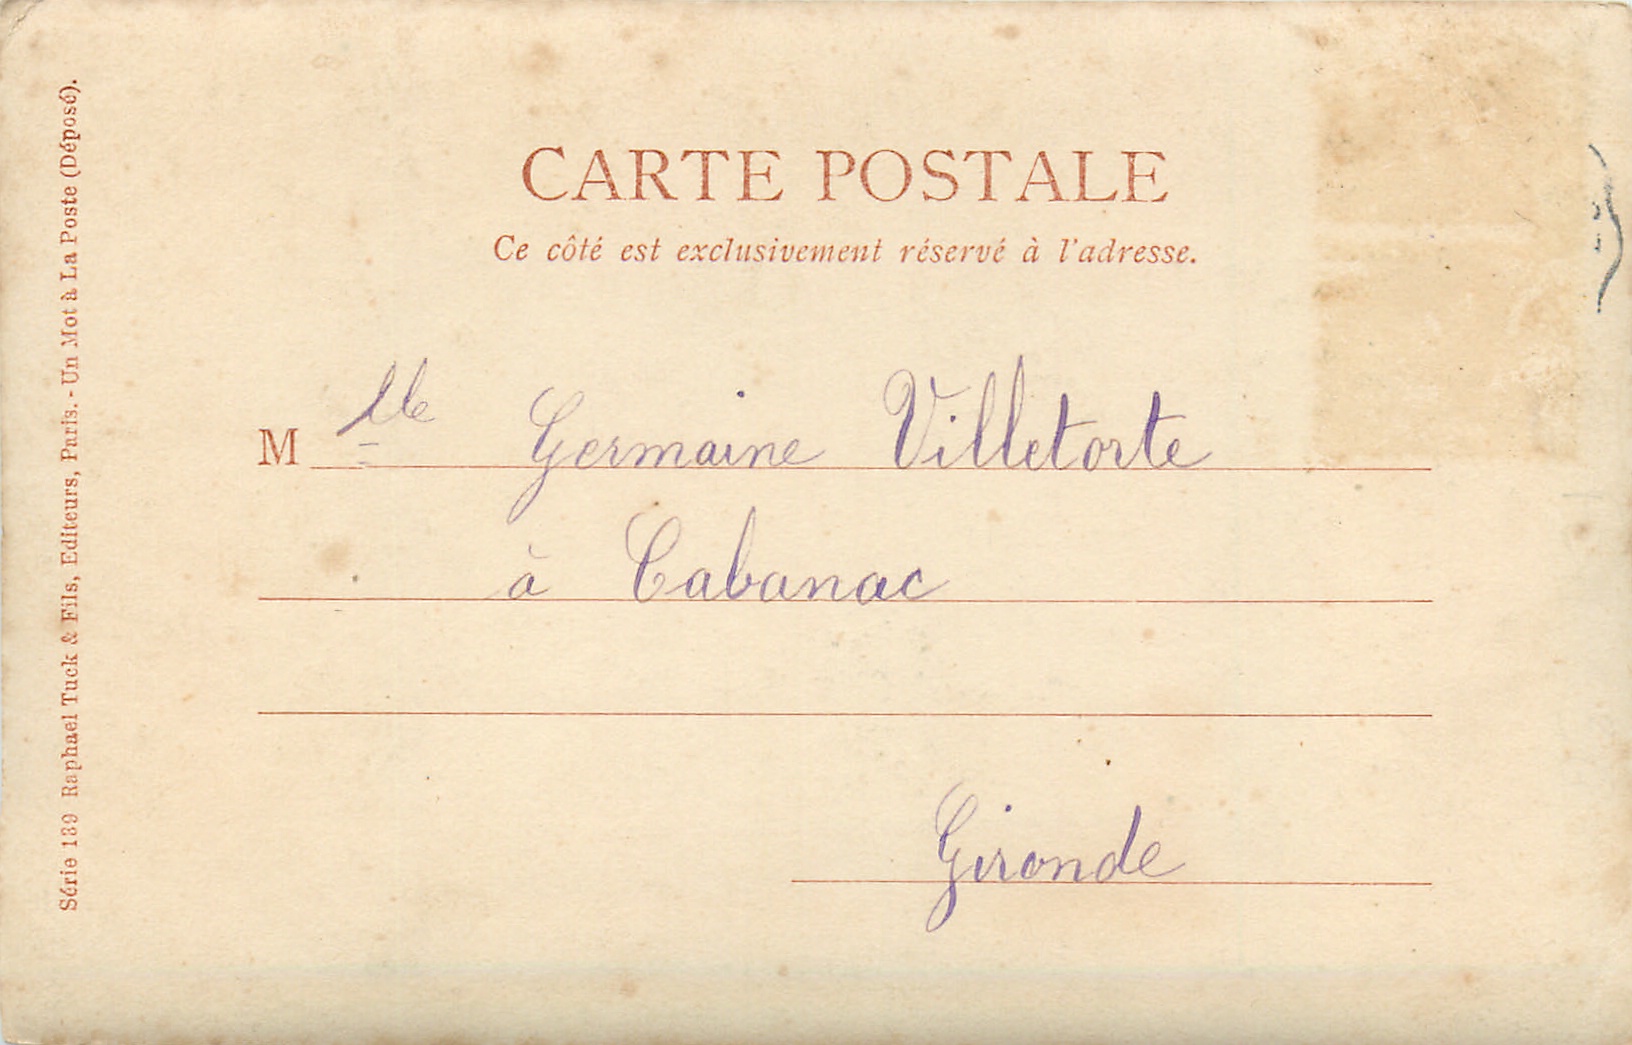 CARTE POSTALE
Ce côté est exclusivement réservé à l'adresse.
Mlle Germaine Villetorte
à Cabanac
Gironde
Série 139 Raphael Tuck & Fils, Editeurs, Paris. - Un Mot à La Poste (Déposé).